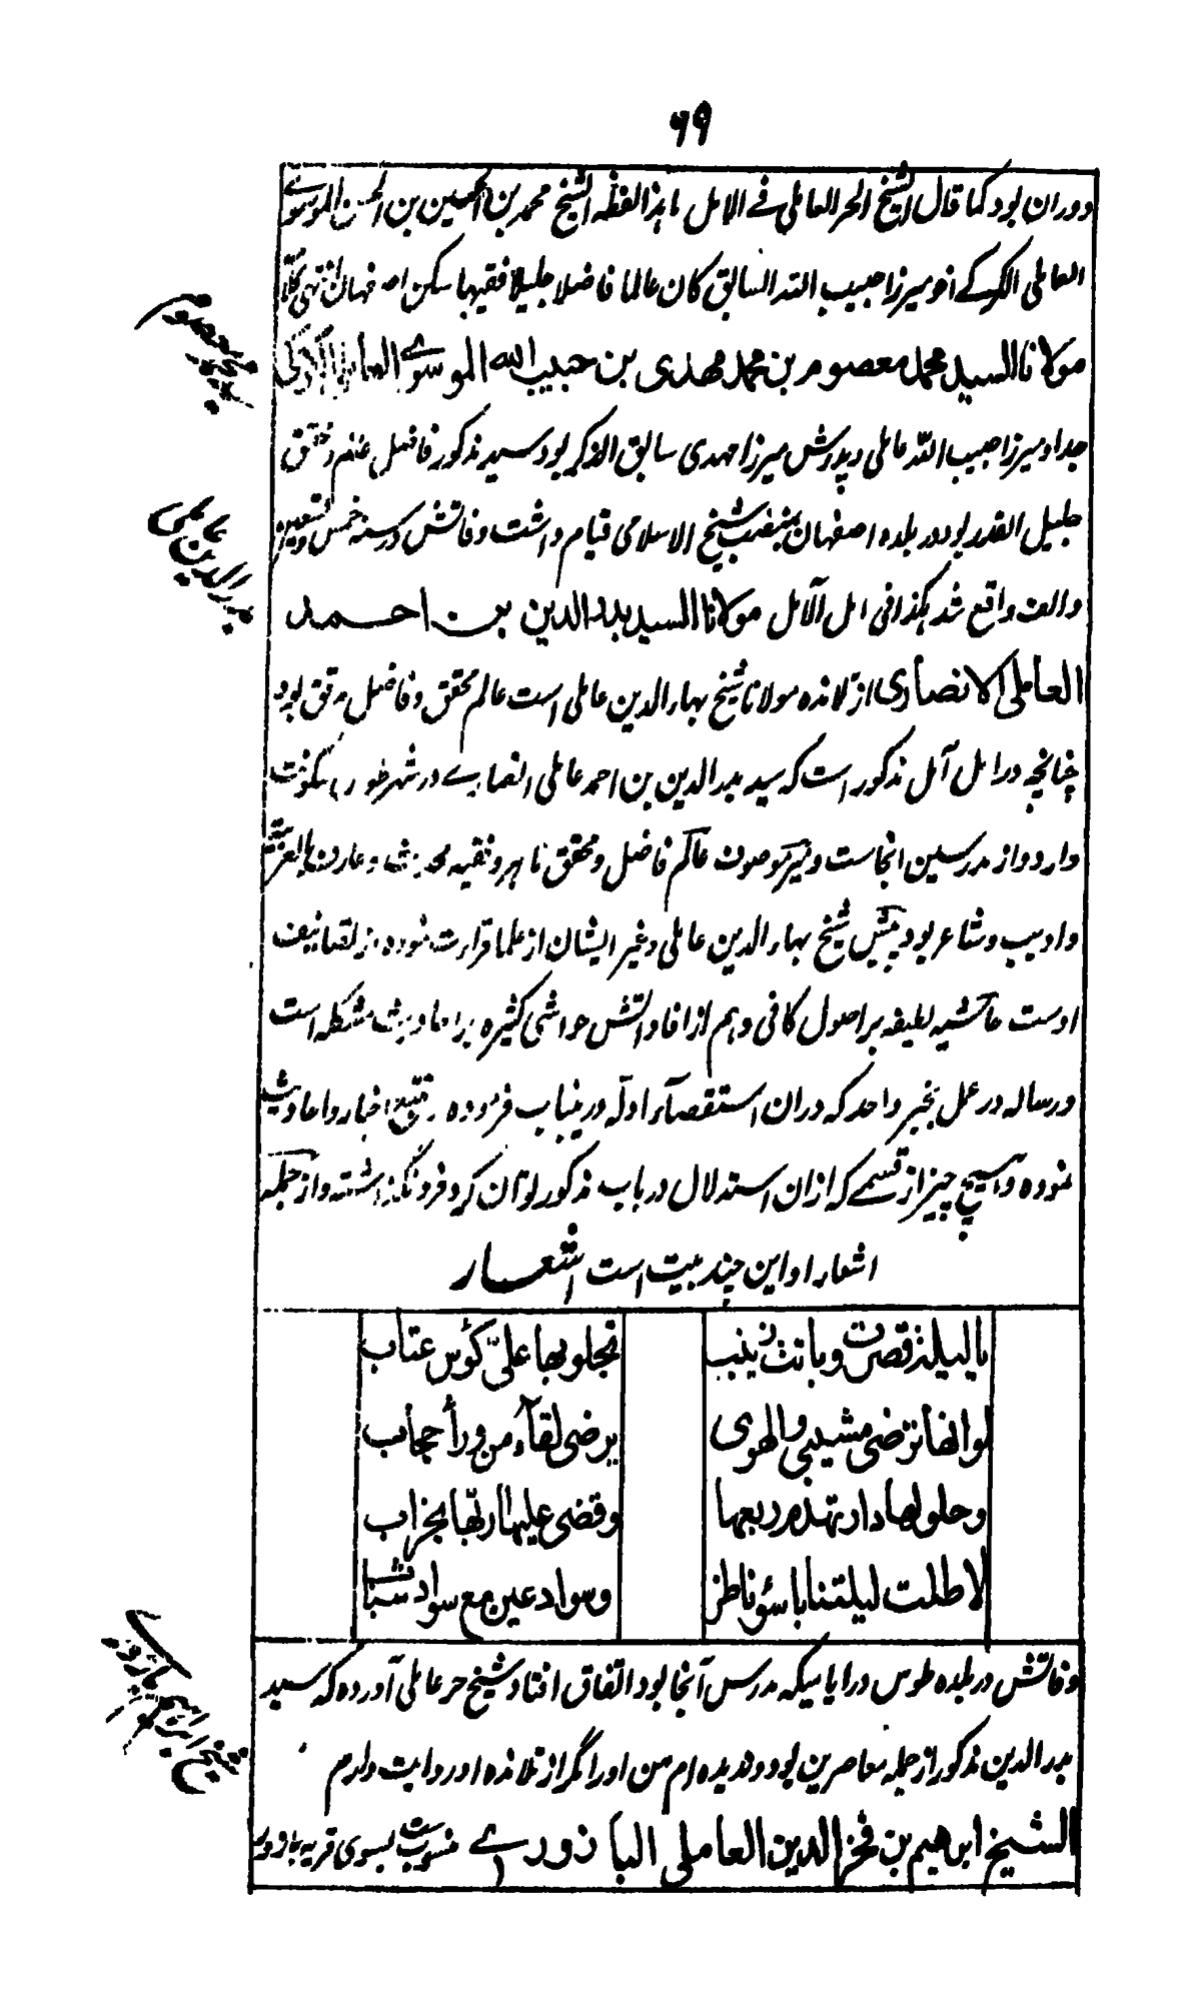 ۶۹
دوران بود کما قال الشیخ الحر العاملی فے الامل ما هذا لفظه الشیخ محمد بن الحسین بن الحسن الموسوے
العاملی الکرکے اخو میرزا حبیب الله السابق کان عالما فاضلا جلیلا فقیها سکن اصفهان انتهی
مولانا السید محمد معصوم بن محمد مهدی بن حبیب الله الموسوے العاملی الکرکی
جد او میرزا حبیب الله عاملی و پدرش میرزا مهدی سابق الذکر بود سید مذکور فاضل محقق
جلیل القدر بود در بلده اصفهان بمنصب شیخ الاسلامی قیام داشت وفاتش در سنه خمس و تسعین
والف واقع شد هکذا فی امل الآمل مولانا السید بدر الدین بن احمد
العاملی الانصاری از تلامذه مولانا شیخ بهاء الدین عاملی است عالم محقق و فاضل مدقق بود
چنانچه در امل آمل مذکور است که سید بدر الدین بن احمد عاملی انصارے در شهر طوس سکونت
دارد و از مدرسین انجاست و نیز موصوف عالم فاضل و محقق ماهر و فقیه محدث و عارف بالعربیة
و ادیب و شاعر بود پیش شیخ بهاء الدین عاملی و غیر ایشان از علما قراءت نموده از تصانیف
اوست حاشیه لطیفه بر اصول کافی و هم از افاداتش حواشی کثیره بر احادیث مشکله است
و رساله در عمل بخبر واحد که دران استقصاء ادله درینباب فرموده و تتبع اخبار و احادیث
نموده و هیچ چیز از قسمے که ازان استدلال در باب مذکور توان کرد فرو نگذاشته و از جمله
اشعار او این چند بیت است اشعار
یا لیلة قصرت وباتت زینب تجلو بها علیّ کؤس عتاب
لو انها ترضی مشیبی والهوی یرضی لقاء من وراء حجاب
وحلولها دار تهدم ربعها وقضی علیها ربّها بخراب
لا طلت لیلتنا باسؤ ناظر وسواد عین مع سواد شباب
وفاتش در بلده طوس در ایامیکه مدرس آنجا بود اتفاق افتاد شیخ حر عاملی آورده که سید
بدر الدین مذکور از جمله معاصرین بود و ندیده ام من او را مگر از تلامذه او روایت دارم
الشیخ ابرهیم بن فخر الدین العاملی البازورے منسوب بسوی قریه بازور
سید محمد معصوم
بدر الدین عاملی
شیخ ابراهیم بازورے